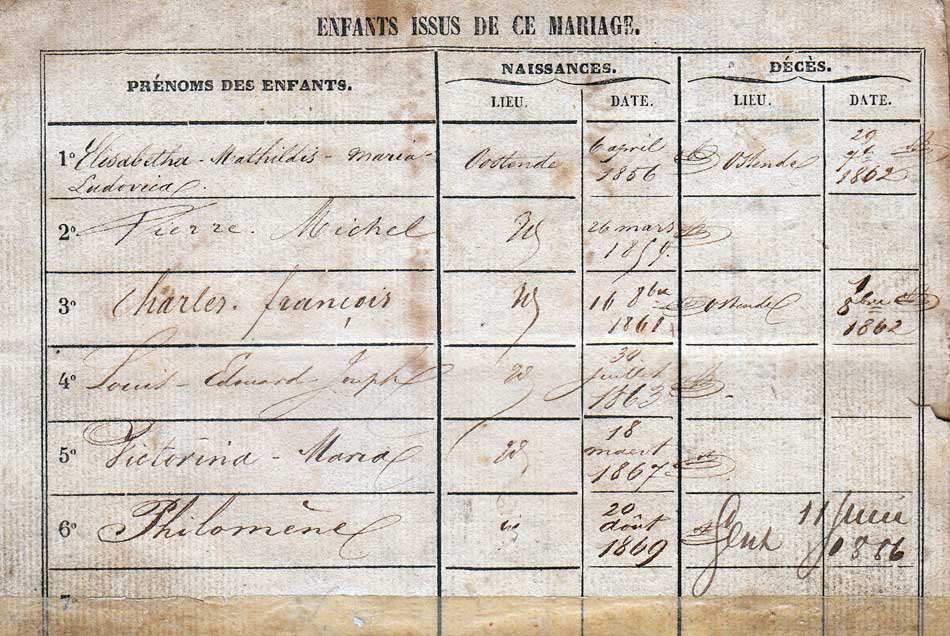 ENFANTS ISSUS DE CE MARIAGE.
PRÉNOMS DES ENFANTS.
NAISSANCES.
DÉCÈS.
LIEU.
DATE.
LIEU.
DATE.
1º Elisabetha - Mathildis - Maria -
Ludovica.
Oostende
6 april
1856
Ostende
29
1862
2º Pierre. Michel
Id
26 mars
1859.
3º Charles. françois
Id
16 8bre
1861
Ostende
1
8bre
1862
4º Louis - Edouard - Joseph
id
30
juillet
1863
5º Victorina - Maria
id
18
maert
1867
6º Philomène
id
20
août
1869
Gent
11 Juin
1886
7º